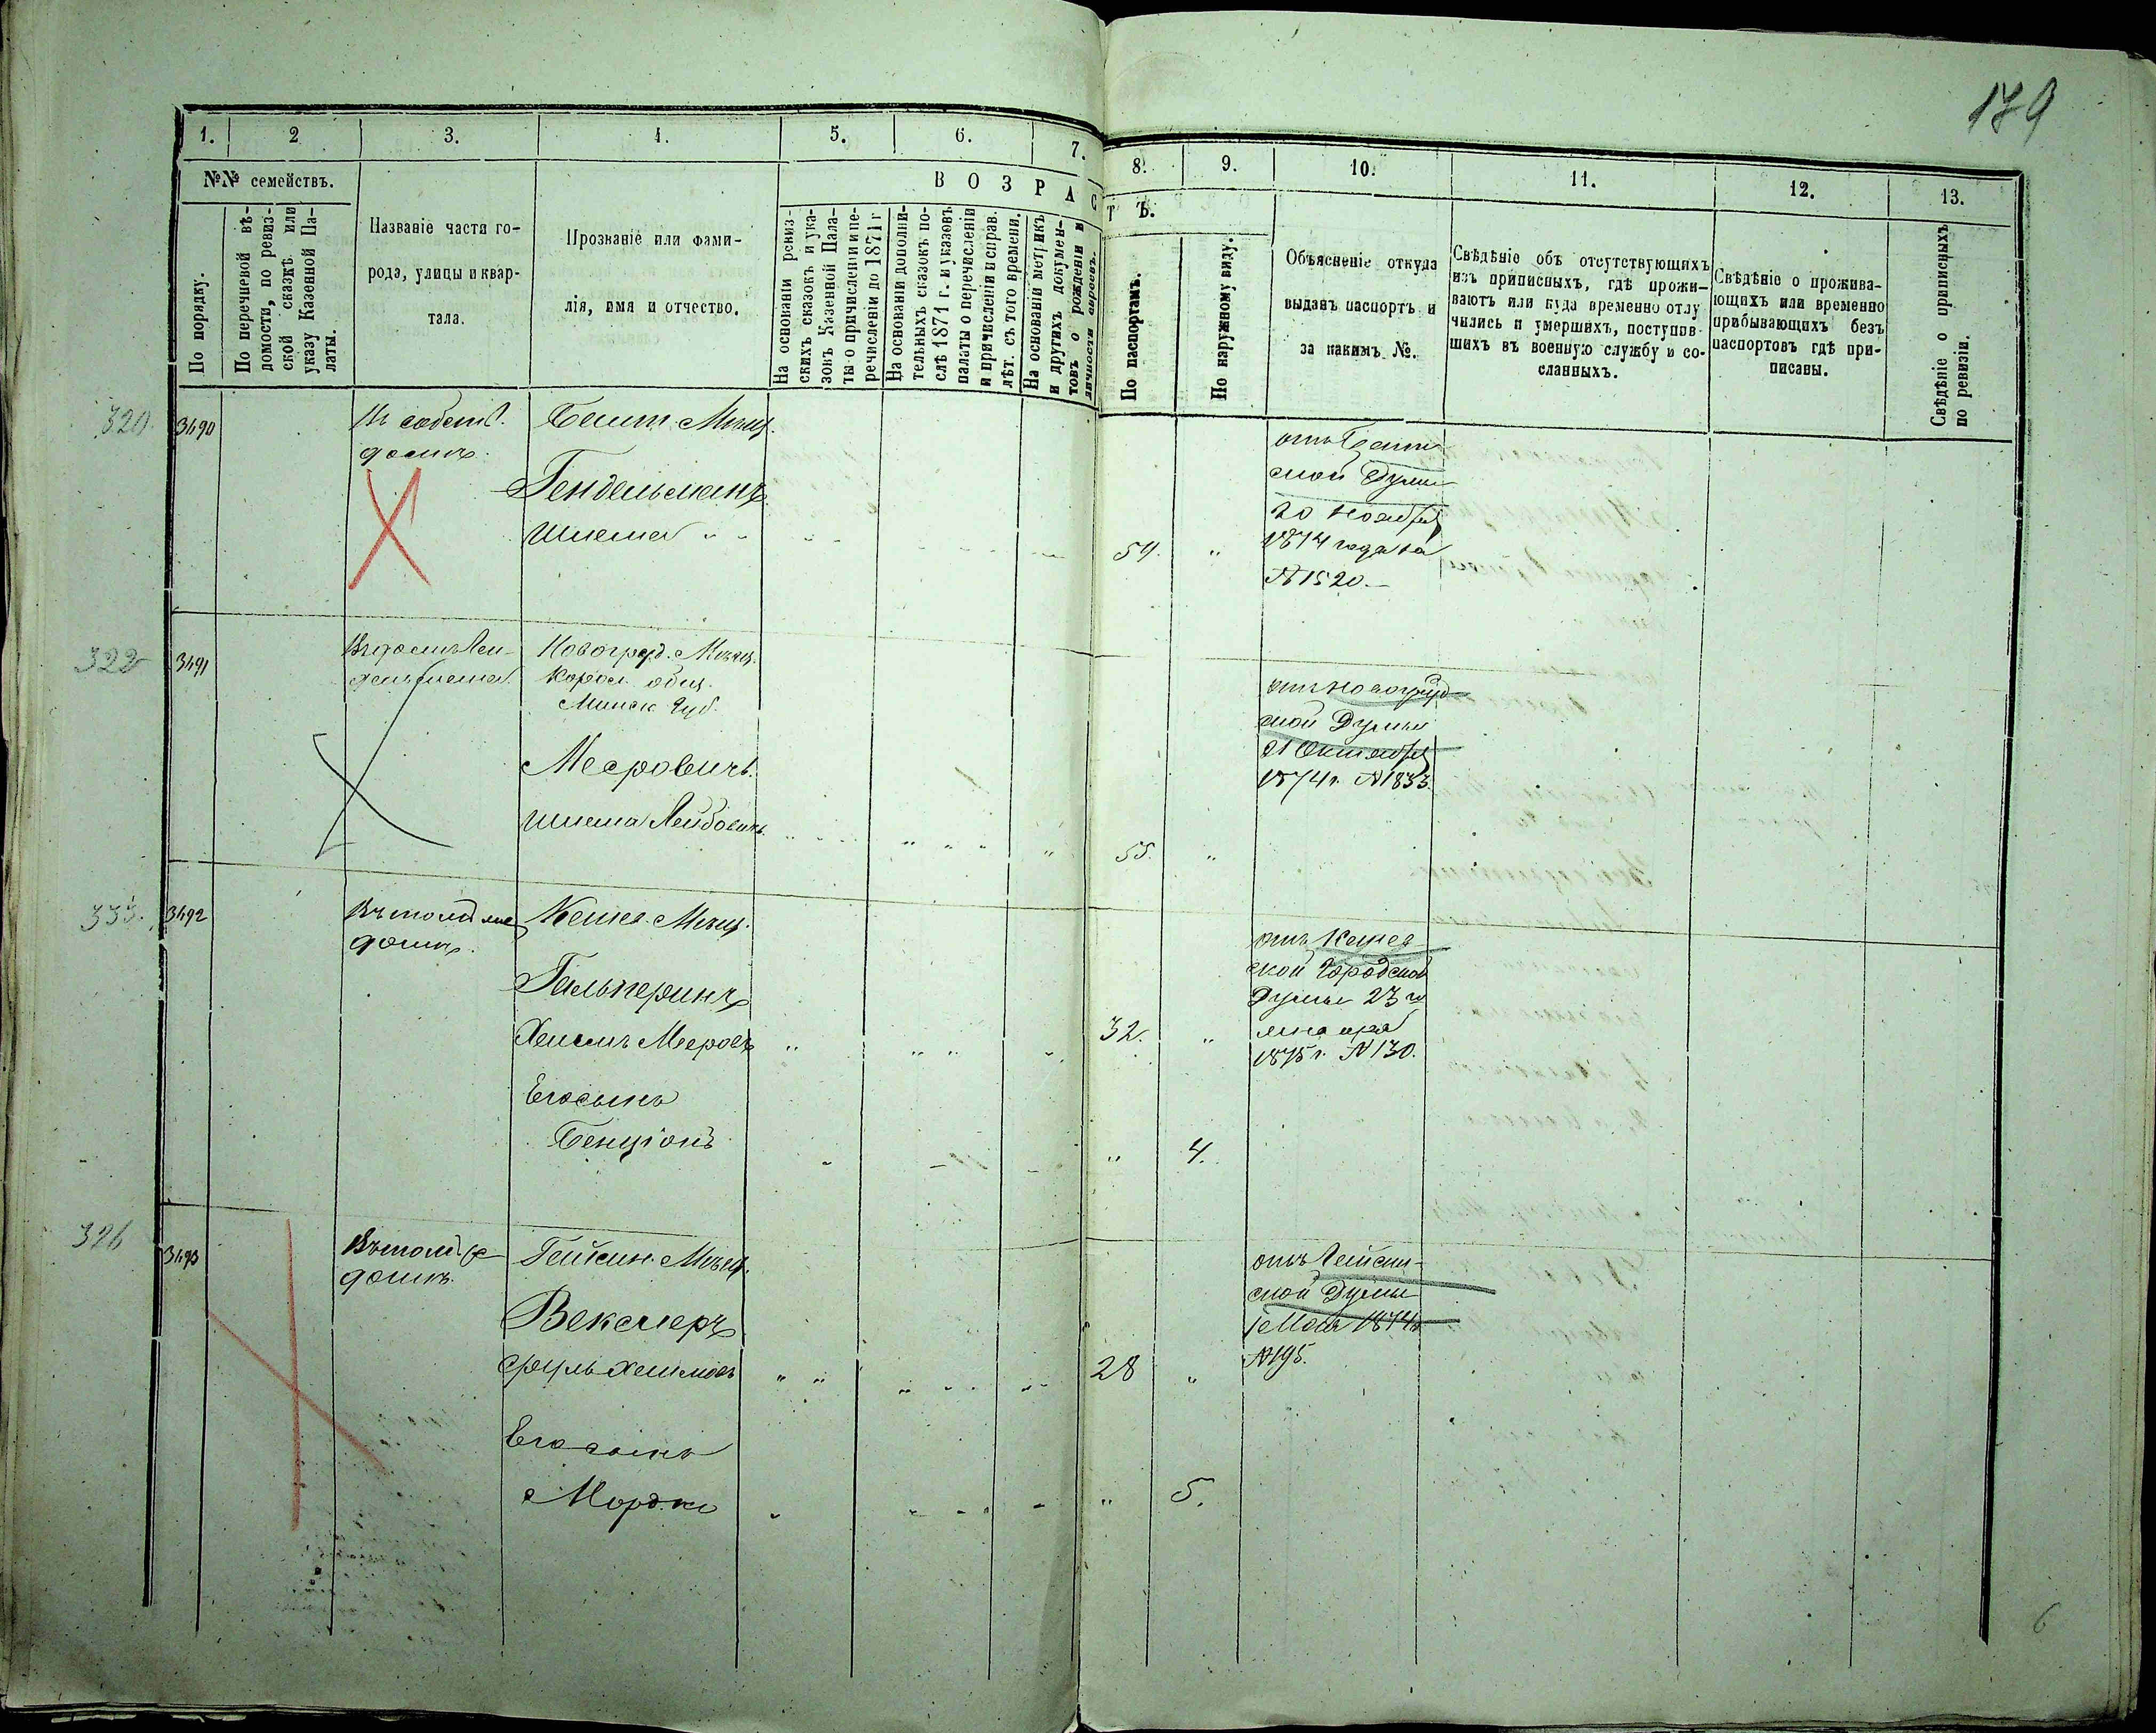 179
1.
2
3.
4.
5.
6.
7.
8.
9.
10.
11.
12.
13.
№№ семействъ.
По порядку.
По перечневой вѣ-
домости, по ревиз-
ской сказкѣ или
указу Казенной Па-
латы.
Названіе части го-
рода, улицы и квар-
тала.
Прозваніе или фами-
лія, имя и отчество.
ВОЗРАСТЪ.
На основаніи ревиз-
скихъ сказокъ и ука-
зовъ Казенной Пала-
ты о причисленіи и пе-
речисленіи до 1871 г
На основаніи дополни-
тельныхъ сказокъ по-
слѣ 1871 г. и указовъ
палаты о перечисленіи
и причисленіи и справ.
лѣт. съ того времени.
На основаніи метрикъ
и другихъ докумен-
товъ о рожденіи и
личности евреевъ.
По паспортамъ.
По наружному виду.
Объясненіе откуда
выданъ паспортъ и
за какимъ №.
Свѣдѣніе объ отсутствующихъ
изъ приписныхъ, гдѣ прожи-
ваютъ или куда временно отлу
чились и умершихъ, поступив-
шихъ въ военную службу и со-
сланныхъ.
Свѣдѣніе о прожива-
ющихъ или временно
прибывающихъ безъ
паспортовъ гдѣ при-
писаны.
Свѣдѣніе о приписныхъ
по ревизіи.
320.
3490
Въ собств.
домѣ.
Мѣщ.
Гендельманъ
Шлема
54.
ской Думы
20 Ноября
1874 года за
№ 1520.
322
3491
Новоград. Мѣщ.
общ.
Минск. Губ.
Мееровичъ.
Шлема Лейбовичъ
55.
ской Думы
21 Октября
1874 г. № 1833.
333.
3492
домѣ.
Кешев. Мѣщ.
Гальперинъ
Хаимъ Мееровъ
32.
Его сынъ
Бенціонъ
4.
отъ Кешев
ской Городской
Думы 23 го
января
1875 г. № 130.
326
3493
домѣ.
Гейсин. Мѣщ.
Векслеръ
Сруль Хаимовъ
28
Его сынъ
Мордко
5.
отъ Гейсин-
ской Думы
1 Мая 1874 г.
№ 195.
6